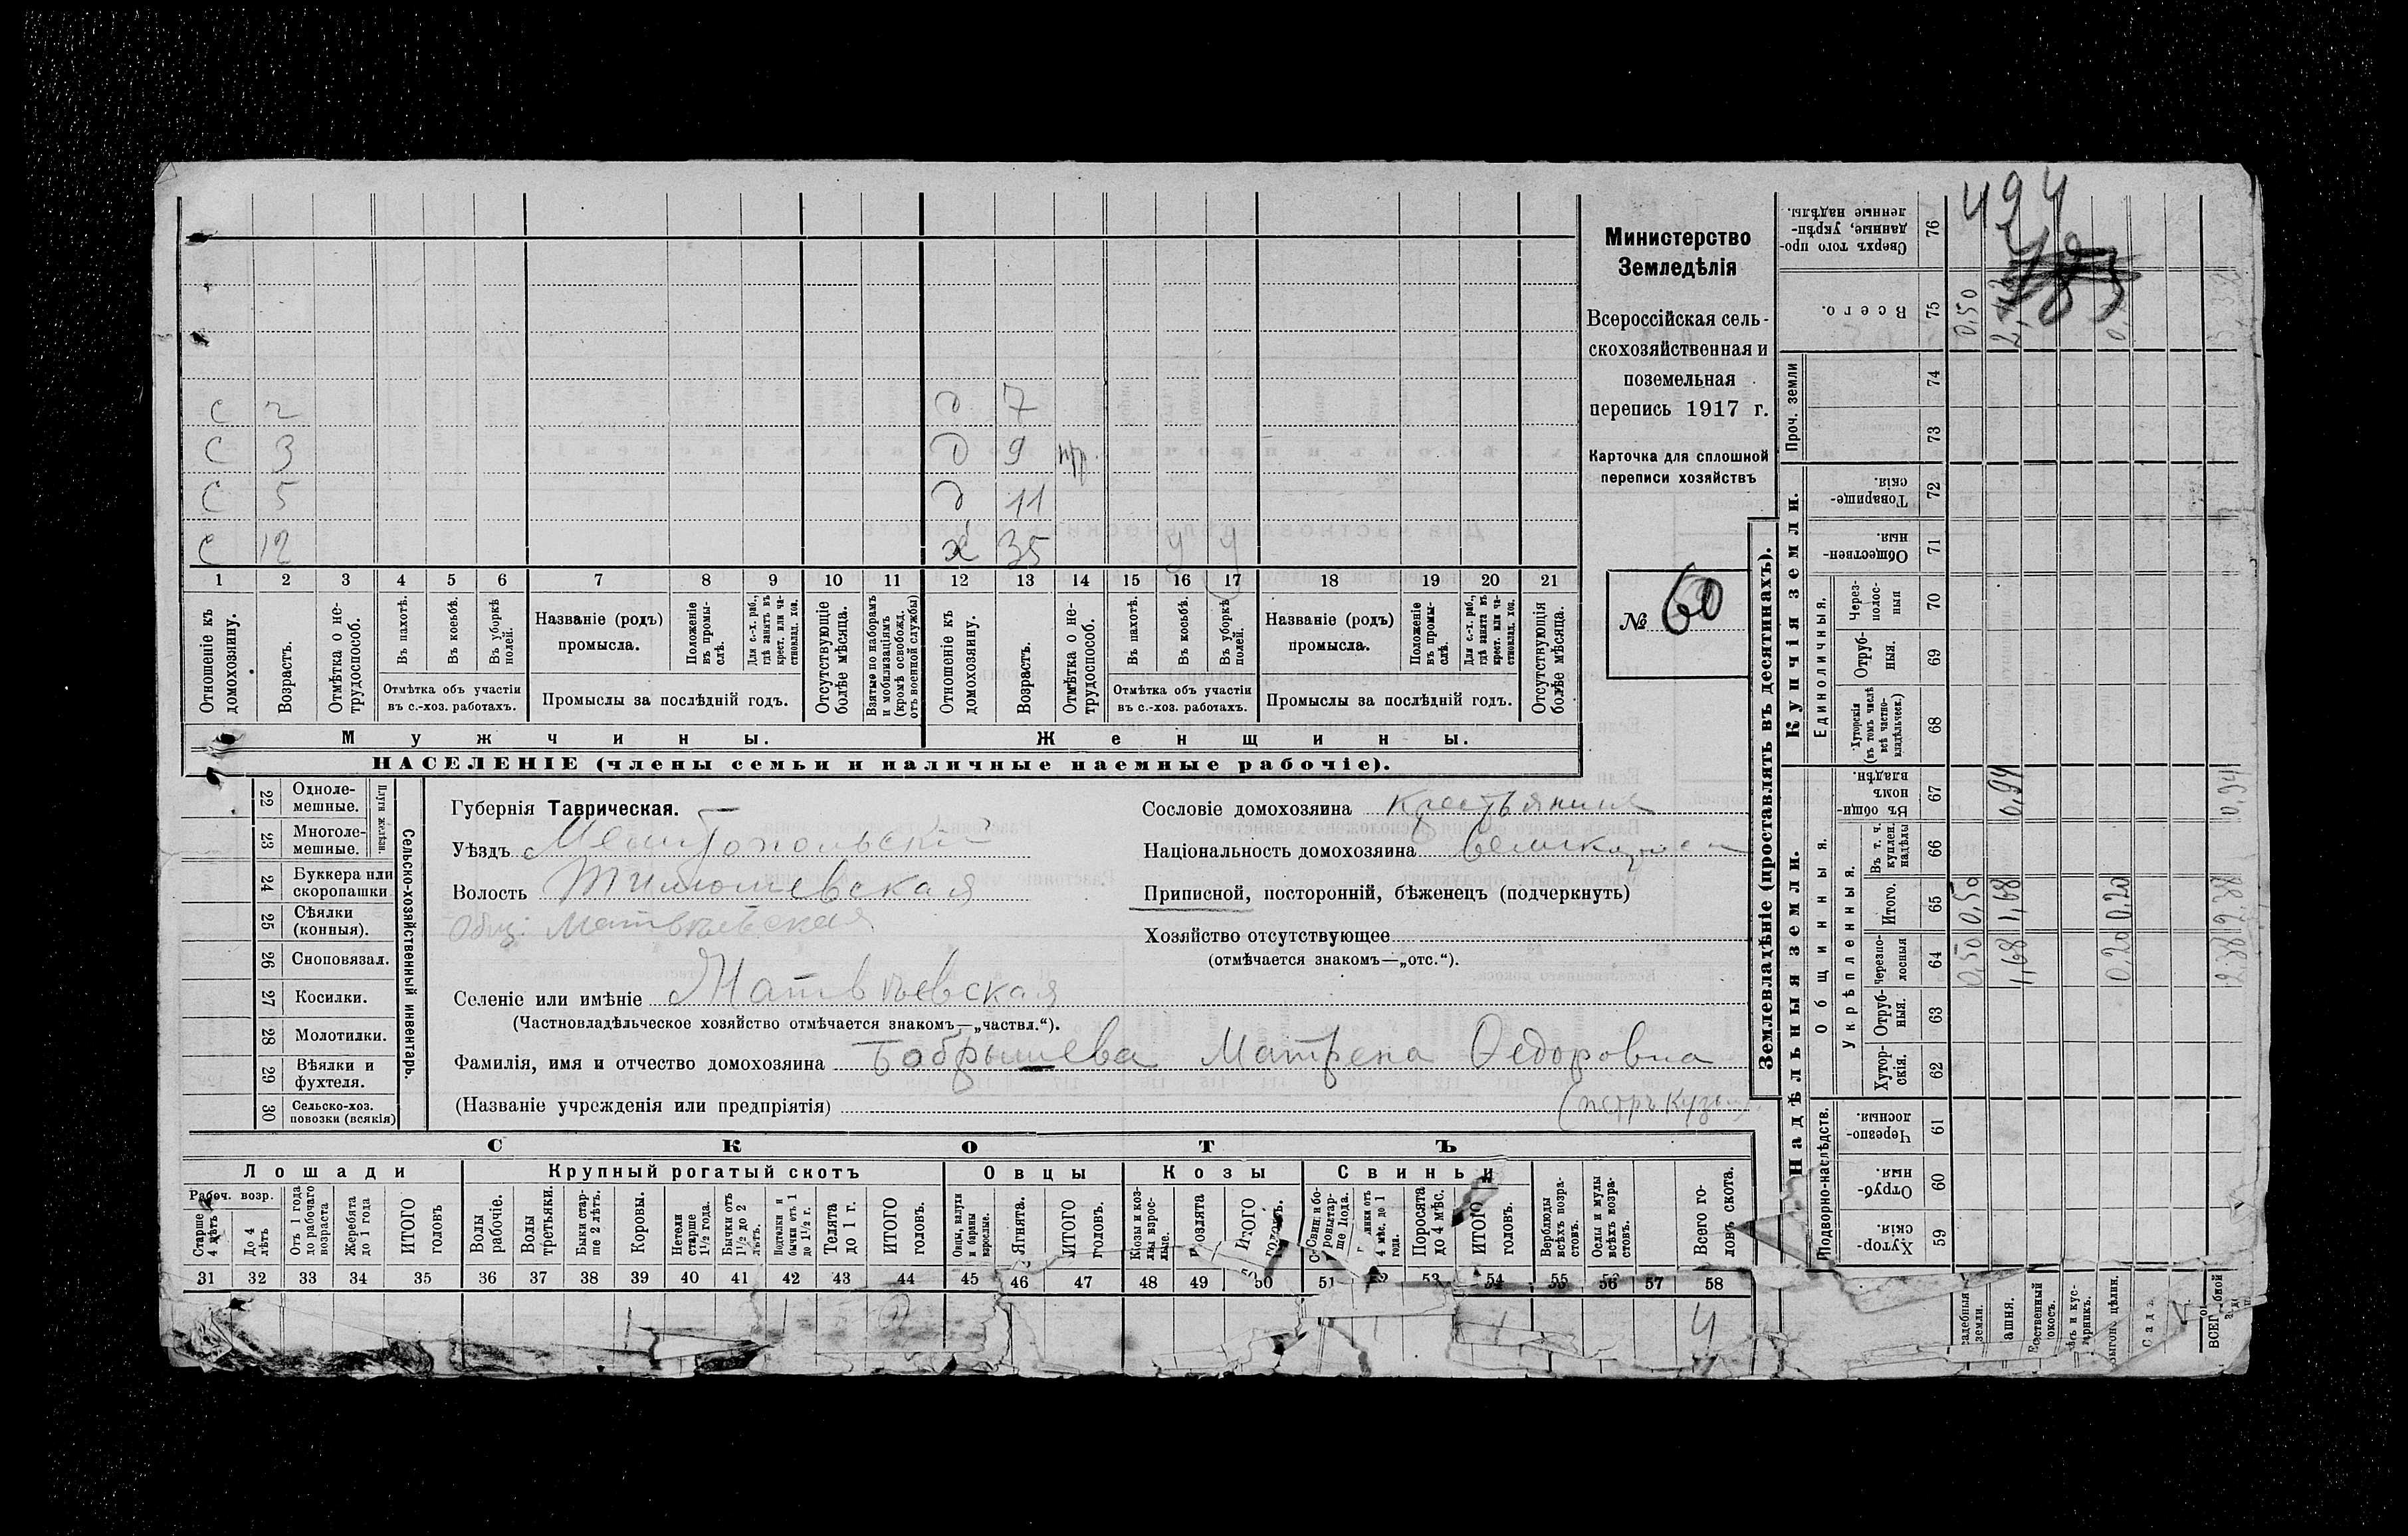 Министерство
Земледѣлія
Всероссійская сель-
скохозяйственная и
поземельная
перепись 1917 г.
Карточка для сплошной
переписи хозяйствъ
№ 60
с 2 д 7
с 3 д 9
с 5 д 11
с 12 х 35 у у
1 2 3 4 5 6 7 8 9 10 11 12 13 14 15 16 17 18 19 20 21
Отношеніе къ домохозяину.
Возрастъ.
Отмѣтка о не-трудоспособ.
Въ пахотѣ.
Въ косьбѣ.
Въ уборкѣ полей.
Отмѣтка объ участіи
въ с.-хоз. работахъ.
Названіе (родъ)
промысла.
Положеніе въ промы-слѣ.
Для с.-х. раб., гдѣ занятъ въ крест. или ча-стновлад. хоз.
Промыслы за послѣдній годъ.
Отсутствующіе болѣе мѣсяца.
Взятые по наборамъ и мобилизаціямъ (кромѣ освобожд. отъ военной службы)
Отношеніе къ домохозяину.
Возрастъ.
Отмѣтка о не-трудоспособ.
Въ пахотѣ.
Въ косьбѣ.
Въ уборкѣ полей.
Отмѣтка объ участіи
въ с.-хоз. работахъ.
Названіе (родъ)
промысла.
Положеніе въ промы-слѣ.
Для с.-х. раб., гдѣ занята въ крест. или ча-стновлад. хоз.
Промыслы за послѣдній годъ.
Отсутствующія болѣе мѣсяца.
Мужчины. Женщины.
НАСЕЛЕНІЕ (члены семьи и наличные наемные рабочіе).
Сельско-хозяйственный инвентарь.
Плуги желѣзн.
22 Одноле-мешные.
23 Многоле-мешные.
24 Буккера или скоропашки
25 Сѣялки (конныя).
26 Сноповязал.
27 Косилки.
28 Молотилки.
29 Вѣялки и фухтеля.
30 Сельско-хоз. повозки (всякія)
Губернія Таврическая.
Уѣздъ Мелитопольскій
Волость Тимошевская
Общ. Матвѣевская
Селеніе или имѣніе Матвѣевская
(Частновладѣльческое хозяйство отмѣчается знакомъ—„частвл.“).
Фамилія, имя и отчество домохозяина Бобрышева Матрена Ѳедоровна
(Названіе учрежденія или предпріятія) (петръ
Сословіе домохозяина крестьянинъ
Національность домохозяина
Приписной, посторонній, бѣженецъ (подчеркнуть)
Хозяйство отсутствующее
(отмѣчается знакомъ—„отс.“).
СКОТЪ
Лошади Крупный рогатый скотъ Овцы Козы Свиньи
Рабоч. возр.
Старше 4 лѣтъ
До 4 лѣтъ
Отъ 1 года до рабочаго возраста
Жеребята до 1 года
ИТОГО головъ
Волы рабочіе.
Волы третьяки.
Быки стар-ше 2 лѣтъ.
Коровы.
Нетели старше 1½ года.
Бычки отъ 1½ до 2 лѣтъ.
Подтелки и бычки отъ 1 до 1½ г.
Телята до 1 г.
ИТОГО головъ.
Овцы, валухи и бараны взрослые.
Ягнята.
ИТОГО головъ.
Козы и коз-лы взрос-лые.
козлята
ИТОГО головъ.
Поросята до 4 мѣс.
ИТОГО головъ.
Верблюды всѣхъ возра-стовъ.
Ослы и мулы всѣхъ возра-стовъ.
Всего го-ловъ скота.
31 32 33 34 35 36 37 38 39 40 41 42 43 44 45 46 47 48 49 50 51 52 53 54 55 56 57 58
4
Землевладѣніе (проставлять въ десятинахъ).
Надѣльныя земли. Купчія земли.
Подворно-наслѣдств.
Общинныя.
Укрѣпленныя.
Единоличныя.
Проч. земли
59 Хутор-скія.
60 Отруб-ныя.
61 Черезпо-лосныя
62 Хутор-скія.
63 Отруб-ныя.
64 Черезпо-лосныя
65 Итого.
66 Въ т. ч. куплен. надѣлы
67 Въ общин-номъ владѣн.
68 Хуторскія (въ томъ числѣ всѣ частно-владѣльческ.)
69 Отруб-ныя.
70 Через-полос-ныя
71 Обществен-ныя.
72 Товарище-скія.
73
74
75 Всего.
76 Сверхъ того про-данные, укрѣп-ленные надѣлы.
494
0,50 0,50 0,50
1,68 1,68 0,94
0,20 0,20
2,38 2,38 0,94